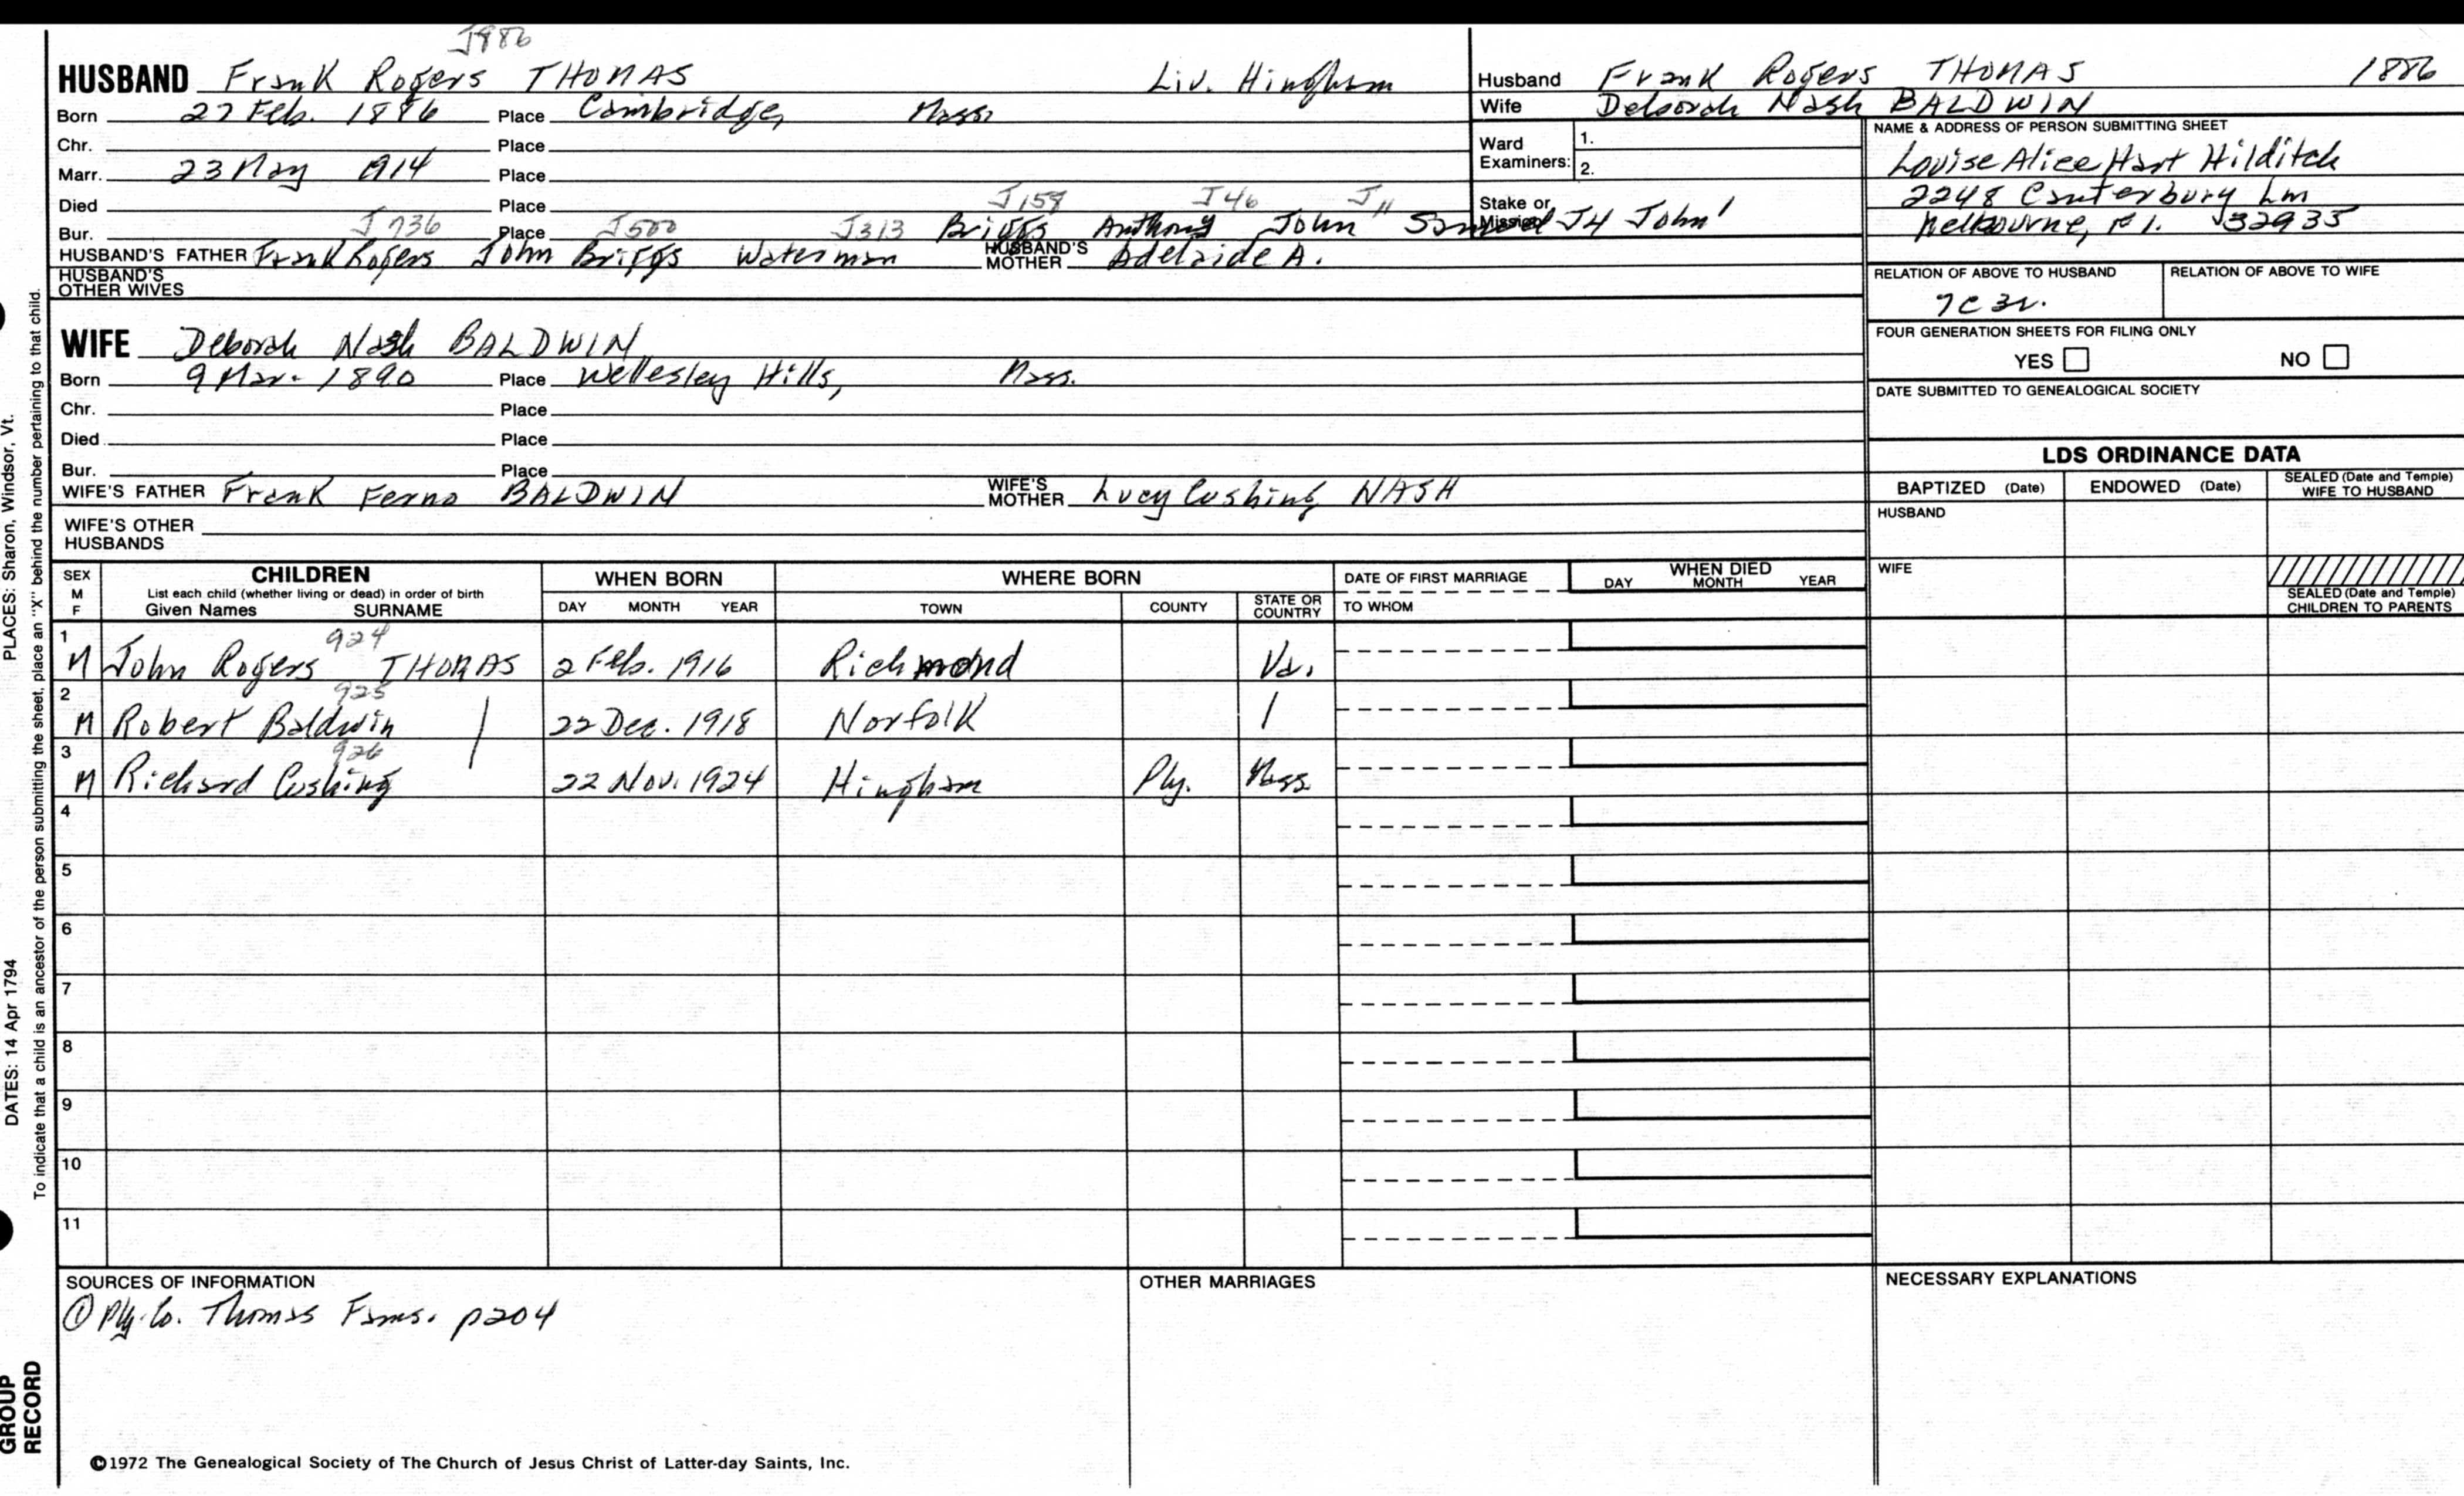 J886
HUSBAND Frank Rogers THOMAS Liv. Hingham
Born 27 Feb. 1886 Place Cambridge, Mass.
Chr. Place
Marr. 23 May 1914 Place
Died Place J159 J46 J11
Bur. J736 Place J500 J313 Briggs Anthony John Samuel J4 John1
HUSBAND'S FATHER Frank Rogers John Briggs Waterman HUSBAND'S MOTHER Adelaide A.
HUSBAND'S OTHER WIVES
Husband Frank Rogers THOMAS 1886
Wife Deborah Nash BALDWIN
Ward Examiners: 1.
2.
Stake or Mission
NAME & ADDRESS OF PERSON SUBMITTING SHEET
Louise Alice Hart Hilditch
2248 Canterbury Ln
Melbourne, Fl. 32935
RELATION OF ABOVE TO HUSBAND RELATION OF ABOVE TO WIFE
7c3r.
FOUR GENERATION SHEETS FOR FILING ONLY
YES NO
DATE SUBMITTED TO GENEALOGICAL SOCIETY
WIFE Deborah Nash BALDWIN
Born 9 Mar. 1890 Place Wellesley Hills, Mass.
Chr. Place
Died Place
Bur. Place
WIFE'S FATHER Frank Ferno BALDWIN WIFE'S MOTHER Lucy Cushing NASH
WIFE'S OTHER HUSBANDS
LDS ORDINANCE DATA
BAPTIZED (Date) ENDOWED (Date) SEALED (Date and Temple) WIFE TO HUSBAND
HUSBAND
WIFE
SEALED (Date and Temple) CHILDREN TO PARENTS
SEX M F
CHILDREN
List each child (whether living or dead) in order of birth
Given Names SURNAME
WHEN BORN
DAY MONTH YEAR
WHERE BORN
TOWN COUNTY STATE OR COUNTRY
DATE OF FIRST MARRIAGE
TO WHOM
WHEN DIED
DAY MONTH YEAR
924
1 M John Rogers THOMAS 2 Feb. 1916 Richmond Va.
925
2 M Robert Baldwin | 22 Dec. 1918 Norfolk |
926
3 M Richard Cushing 22 Nov. 1924 Hingham Ply. Mass.
4
5
6
7
8
9
10
11
SOURCES OF INFORMATION
① Ply. Co. Thomas Fams. p204
OTHER MARRIAGES
NECESSARY EXPLANATIONS
©1972 The Genealogical Society of The Church of Jesus Christ of Latter-day Saints, Inc.
GROUP RECORD
DATES: 14 Apr 1794 PLACES: Sharon, Windsor, Vt.
To indicate that a child is an ancestor of the person submitting the sheet, place an "X" behind the number pertaining to that child.